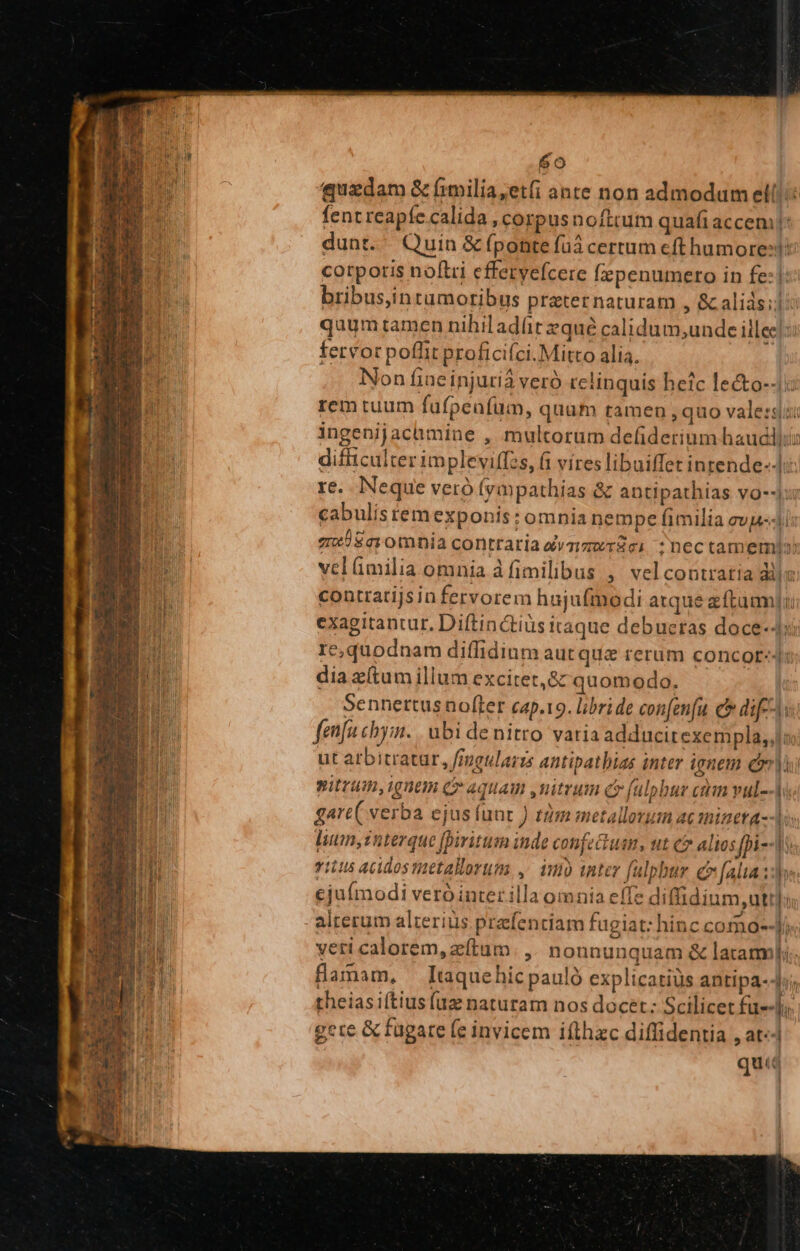 60
quædam & ſimilia, etſi ante non admodum eſ
ſent reapſe calida, corpus noſtrum quaſi accen
dunt. Quin & ſponte ſuâ certum eſt humores
corporis noſtri efferveſcere ſæpenumero in fe-
bribus, in tumoribus præter naturam, & aliàs:
quum tamen nihil adſit æquè calidum, unde ille
fervor poſſit proficiſci. Mitto alia.
Non ſine injuriâ verò relinquis heîc lecto-
rem tuum ſuſpenſum, quum tamen, quo vales
ingenij acumine, multorum deſiderium haud
difficulter impleviſſes, ſi vires libuiſſet intende-
re. Neque verò ſympathias & antipathias vo-
cabulis rem exponis: omnia nempe ſimilia
omnia contraria ; nec tamen
vel ſimilia omnia à ſimilibus, vel contraria à
contrarijs in fervorem hujuſmodi atque æſtum
exagitantur. Diſtinctiùs itaque debueras doce-
re, quodnam diſſidium aut quæ rerum concor-
dia æſtum illum excitet, & quomodo.
Sennertus noſter cap. 19. libri de conſenſu & diſ-
ſenſu chym. ubi de nitro varia adducit exempla,
ut arbitratur, ſingularis antipathias inter ignem &
nitrum, ignem & aquam, nitrum & ſulphur cùm vul-
gare (verba ejus ſunt) tùm metallorum ac minera-
lium, interque ſpiritum inde confectum, ut & alios ſpi-
ritus acidos metallorum, imò inter ſulphur & ſalia:
ejuſmodi verò inter illa omnia eſſe diſſidium, ut
alterum alteriùs præſentiam fugiat: hinc com̄o-
veri calorem, æſtum, nonnunquam & latam
flam̄am, Itaque hic paulò explicatiùs antipa-
theias iſtius ſuæ naturam nos docet: Scilicet fu-
gere & fugare ſe invicem iſthæc diffidentia, at-